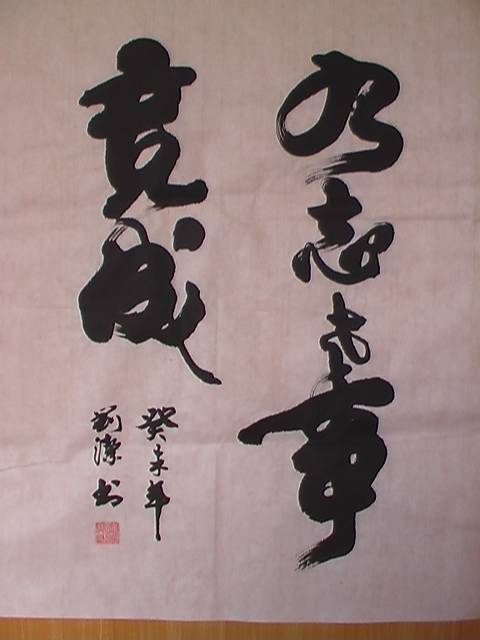 有志者事
竟成
癸未年
劉潔书